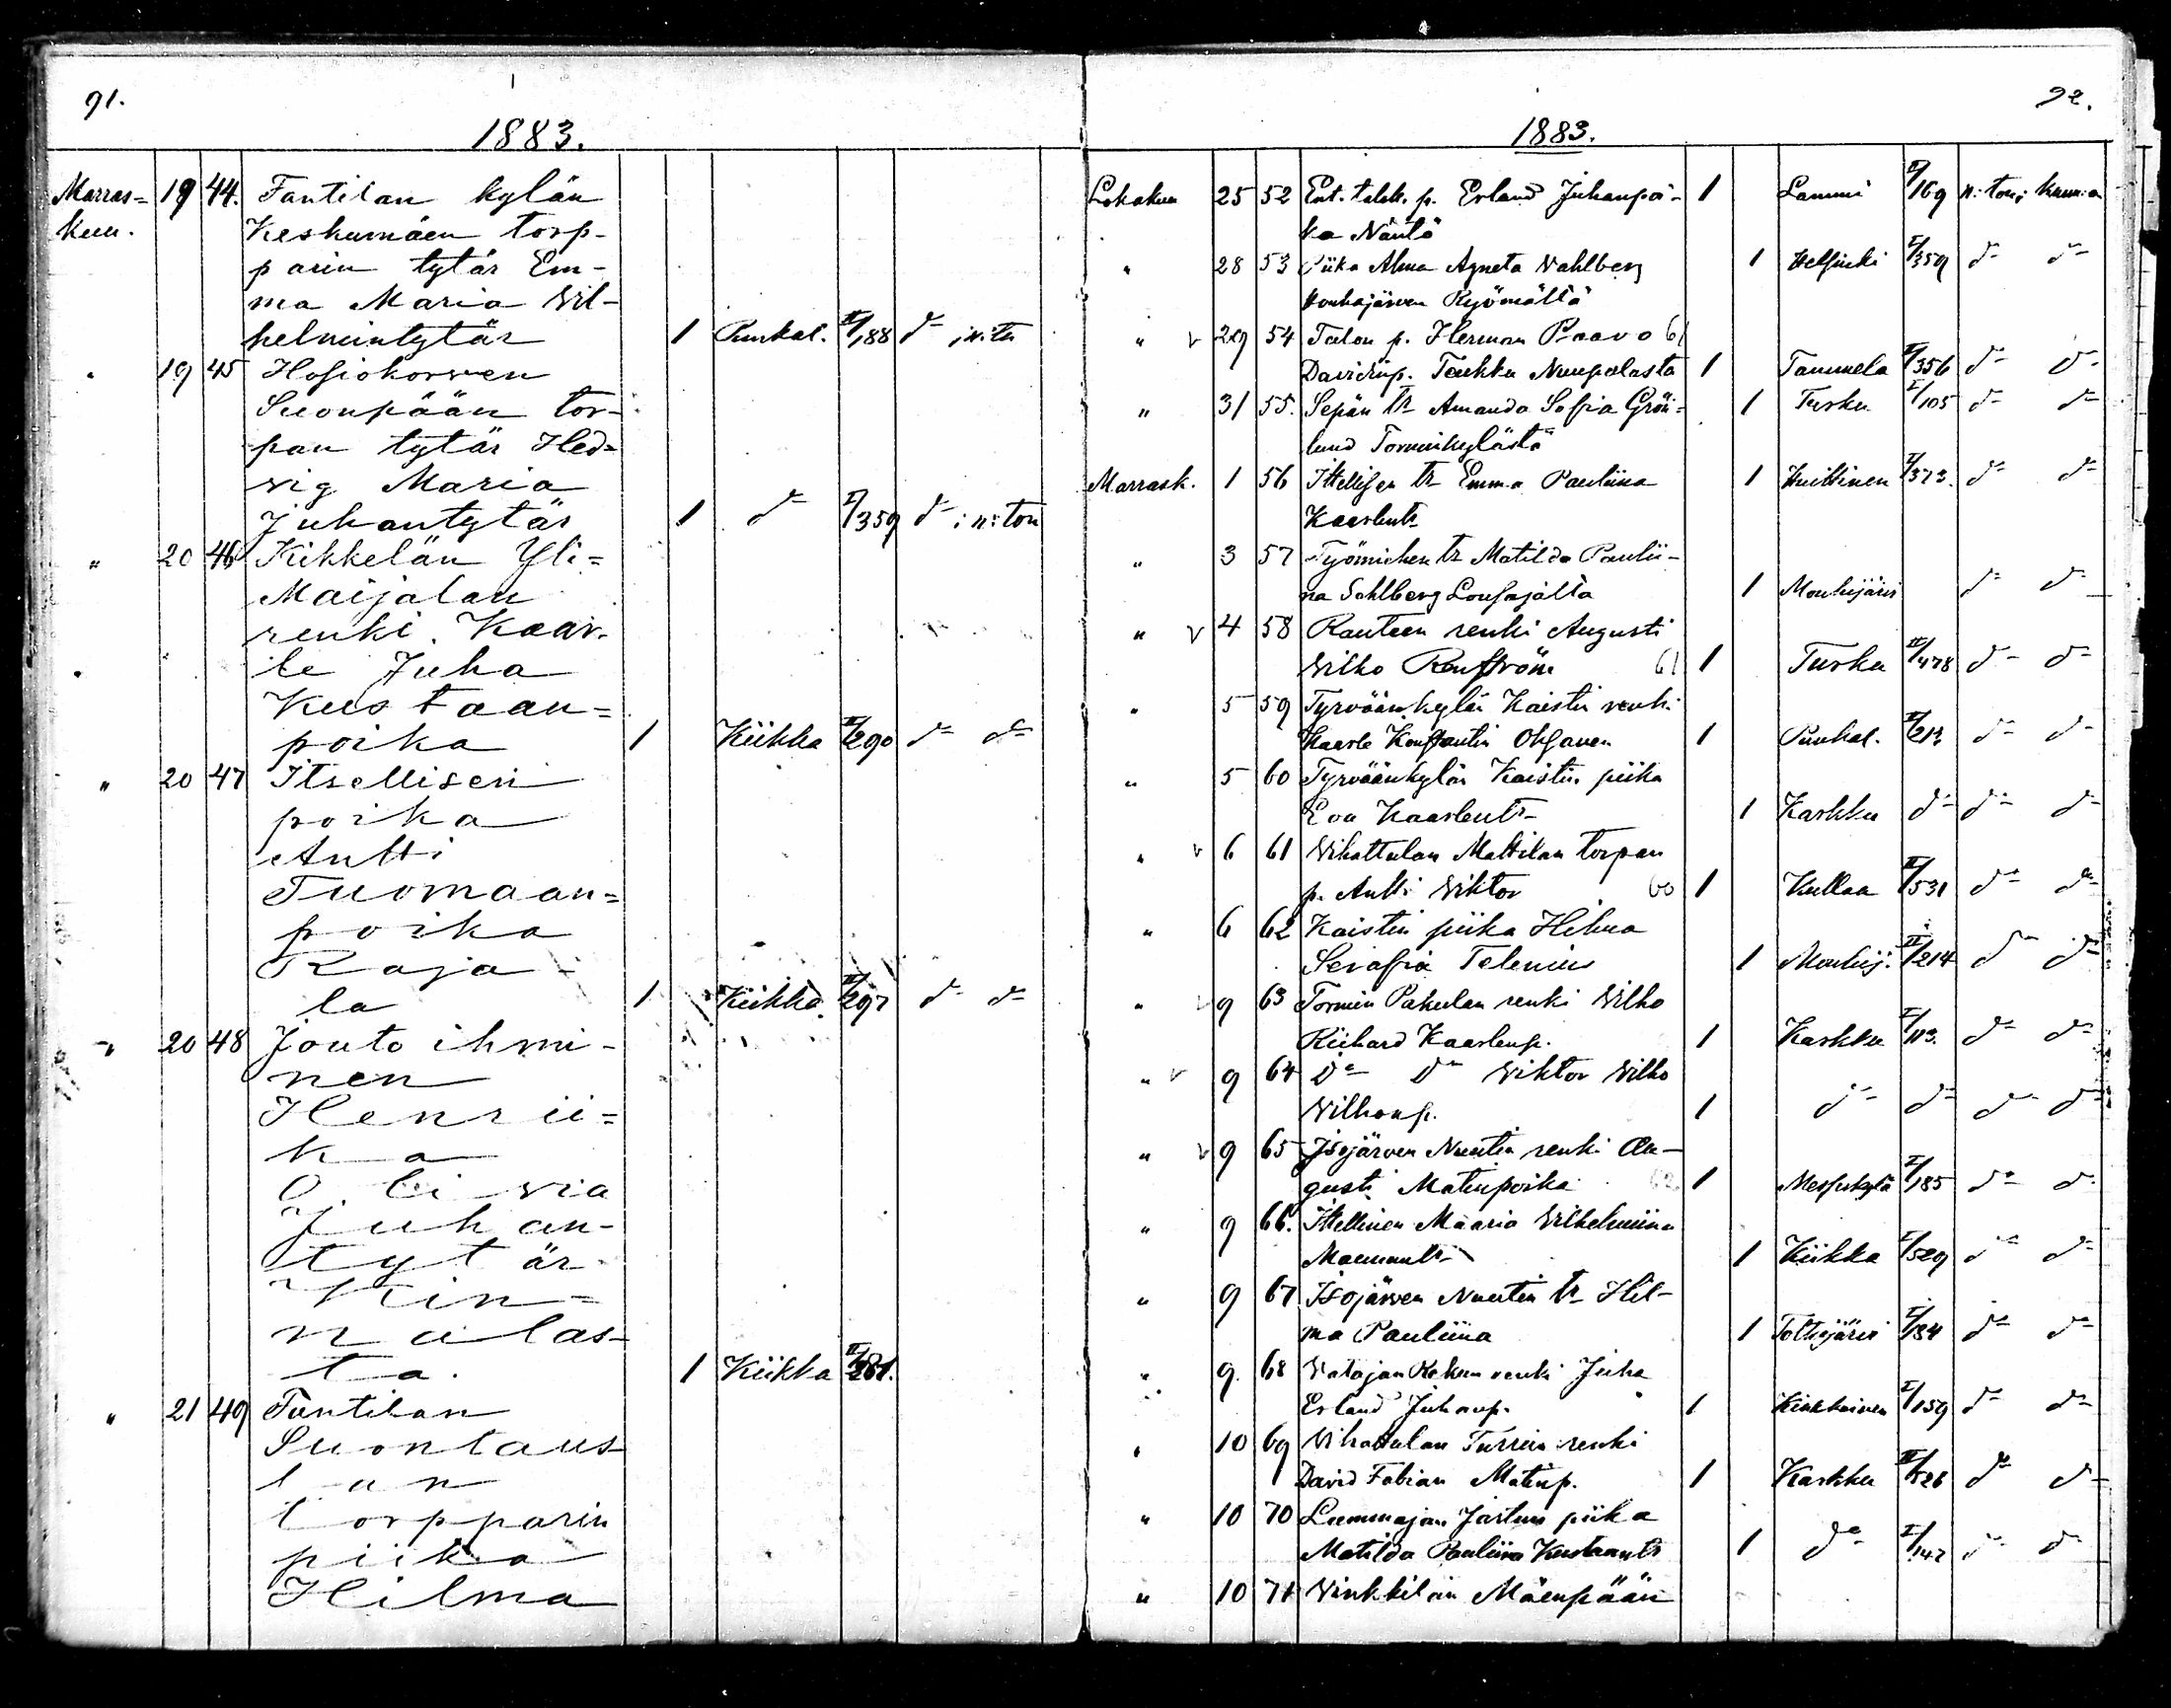 91.
1883.
Marras= 19 44. Fantilan kylän
kuu. Keskumäen torp-
parin tytär Em-
ma Maria Wil-
helmintytär 1 Punkal. II/188 do
" 19 45
Suonpään tor-
pan tytär Hed-
vig Maria
Juhantytär 1 do I/359 do n:ton
" 20 46 Kikkelän Yli=
Maijalan
renki Kaar-
le Juha
Kustaan=
poika 1 Kiikka II/290 do do
" 20 47 Itsellisen
poika
Antti
Tuomaan=
poika
Raja-
la 1 Kiikka II/297 do do
" 20 48 Jouto ihmi-
nen
Henrii=
ka
Olivia
Juhan-
tytär
Kin=
nalas-
ta. 1 Kiikka II/281.
" 21 49 Tantilan
Suontaus
tan
torpparin
piika
Hilma
92.
1883.
Lokakuu 25 52 Ent. talell. p. Erland Juhanpoi- 1 Lammi II/169
ka Näntö
" 28 53 Piika Alma Agneta Wahlberg 1 Helsinki I/359 do do
Houhajärven Ryömältä
" v 29 54 Talon p. Herman Paavo 61
Davidinp. Taukku Nuupalasta 1 Tammela II/356 do do
" 31 55. Sepän tr Amanda Sofia Grön- 1 Turku I/105 do do
lund Tormikylästä
Marrask. 1 56 Ittellisen tr Emma Pauliina 1 Huittinen II/373. do do
Kaarlentr
" 3 57 Työmiehen tr Matilda Paulii-
na Sahlberg Lousajalta 1 Mouhijärvi do do
" v 4 58 Rauteen renki Augusti
Wilho Renström 61 1 Turku II/478 do do
" 5 59 Tyrväänkylän Kaistin renki
Kaarle Konstantin Ohsanen 1 Punkal. II/213. do do
" 5 60 Tyrväänkylän Kaistin piika
Eva Kaarlentr 1 Karkku do do do
" v 6 61 Wihattulan Mattilan torpan
p. Antti Wiktor 60 1 Kullaa II/531 do do
" 6 62 Kaistin piika Hilma
Serafia Telenius 1 Mouhij. II/214 do do
" v 9 63 Tormin Pakulan renki Wilho
Riihard Kaarlenp. 1 Karkku I/113. do do
" v 9 64 Do Do Wiktor Wilho
Wilhonp. 1 do do do do
" v 9 65 Isojärven Nuutin renki Au-
gusti Matinpoika 62 1 Messukylä I/185 do do
" 9 66. Ittellinen Maaria Wilhelmiina
Maununtr 1 Kiikka I/529 do do
" 9 67 Isojärven Nuutin tr Hil-
ma Pauliina 1 Tottijärvi I/184 do do
" 9. 68 Watajan Kakun renki Juha
Erland Juhanp. 1 Kiikkoinen I/159 do do
" 10 69 Wihattulan Turrin renki
David Fabian Matinp. 1 Karkku II/526 do do
" 10 70 Liemmajan Jastun piika
Matilda Pauliina Kustaantr 1 do I/147 do do
" 10 71 Winkkilän Mäenpään